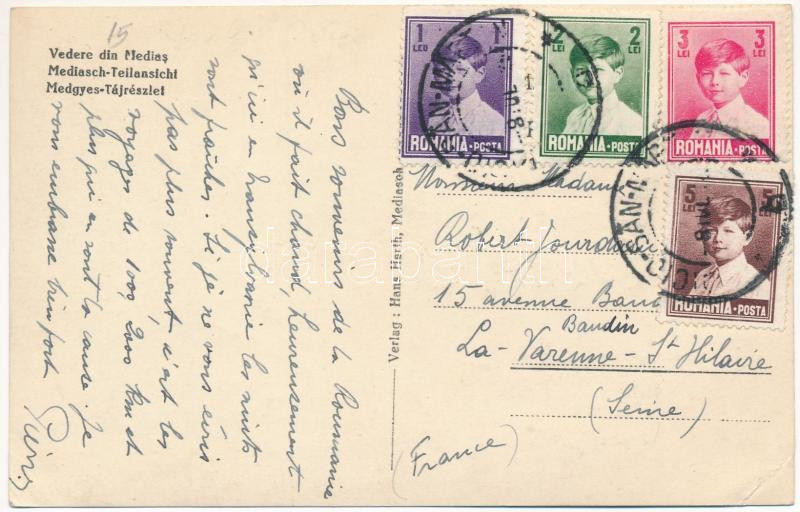 15
Vedere din Mediaș
Mediasch-Teilansicht
Medgyes-Tájrészlet
Bons souvenirs de la Roumanie
où il fait chaud, heureusement
qu'ici en Transylvanie les nuits
sont fraîches. Si je ne vous écris
pas plus souvent c'est les
voyages de 1000, 2000 Km et
plus qui en sont la cause. Je
vous embrasse bien fort
Verlag : Hans Harth, Mediasch
1 LEU 1
ROMANIA·POSTA
2 LEI 2 LEI
ROMANIA·POSTA
3 LEI 3 LEI
ROMANIA·POSTA
5 LEI 5
ROMANIA·POSTA
Monsieur Madame
Robert Jourdain
15 avenue
Baudin
La-Varenne-St Hilaire
(Seine)
(France)
darabanth